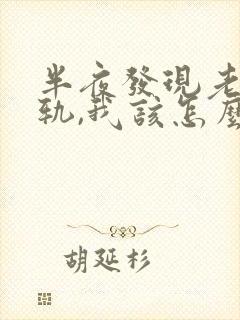 半夜發現老
軌,我該怎麼
胡延杉